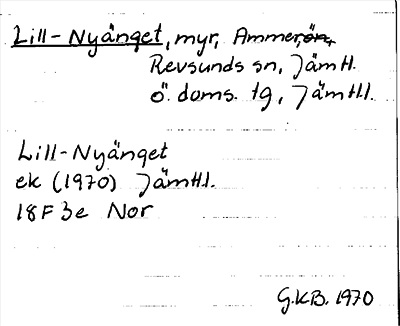 Lill-Nyänget, myr, Ammer,
Revsunds sn, Jämtl.
Ö. doms. tg, Jämtl.l.
Lill-Nyänget
ek (1970) Jämtl.l.
18F 3e Nor
G.K.B. 1970